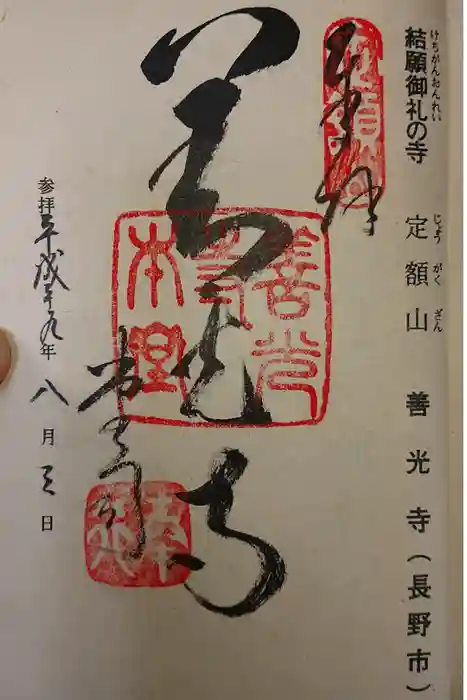 結願御礼の寺 定額山 善光寺(長野市)
けちがんおんれい じょうがくざん
奉拝
善光寺
善光寺本堂
参拝平成十九年八月三日